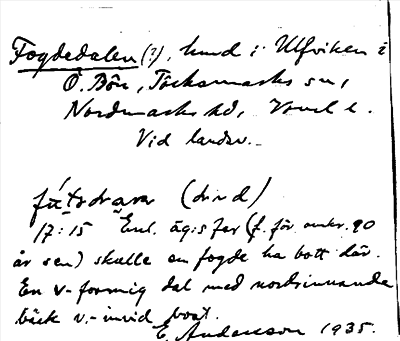 Fogdedalen (?), lund i Ulfviken i
Ö. Bön, Töcksmarks sn,
Nordmarks hd, Vrml l.
Vid landsv.
(dind)
17:15 Enl. äg:s far (f. för omkr. 90
år sen) skulle en fogde ha bott där.
En v-formig dal med nordrinnande
bäck v.-invid bost.
E. Andersson 1935.